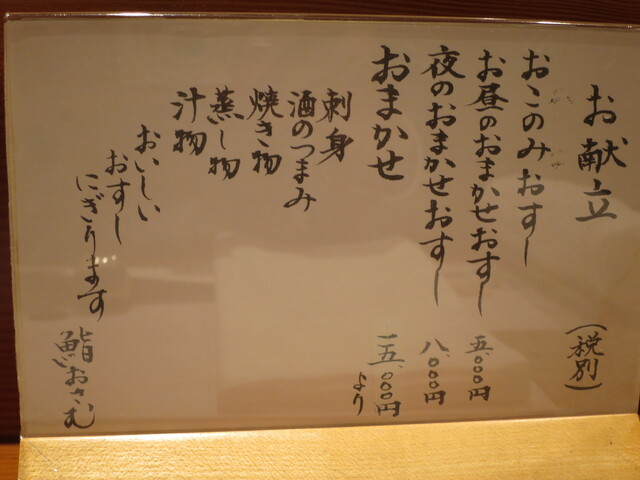 お献立
(税別)
おこのみおすし
お昼のおまかせおすし 五.〇〇〇円
夜のおまかせおすし 八.〇〇〇円
おまかせ 一五.〇〇〇円より
刺身
酒のつまみ
焼き物
蒸し物
汁物
おいしい
おすし
にぎります
鮨おさむ